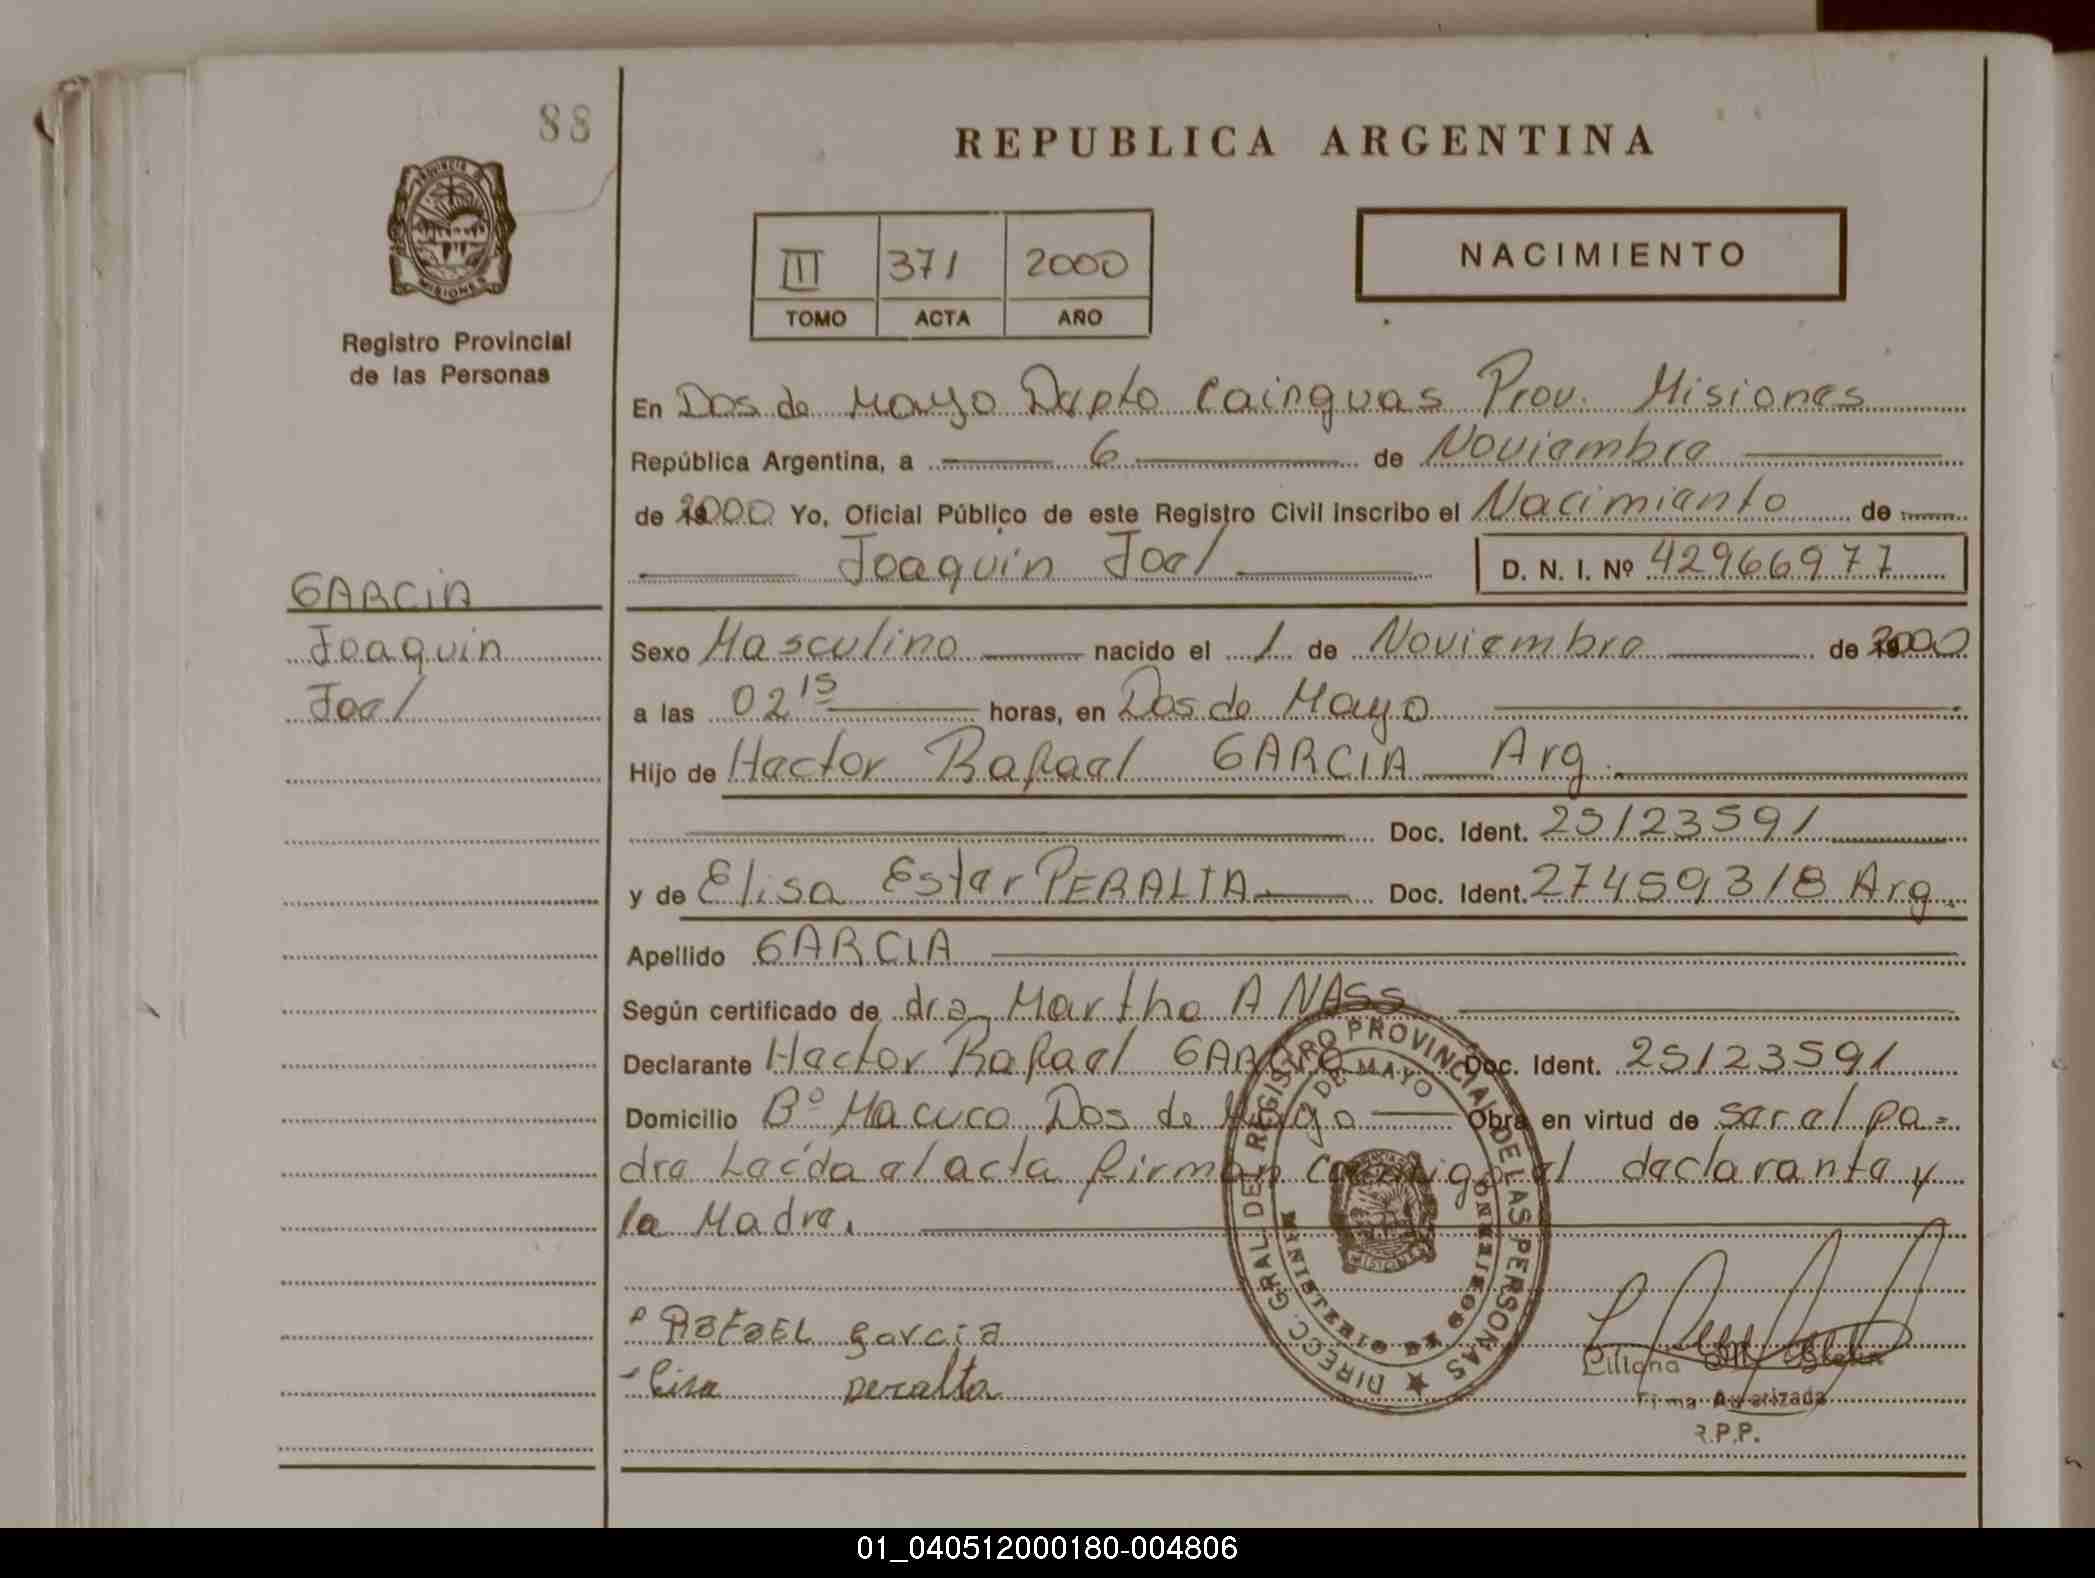 88
REPUBLICA ARGENTINA
PROVINCIA DE
MISIONES
Registro Provincial
de las Personas
III 371 2000
TOMO ACTA AÑO
NACIMIENTO
En Dos de Mayo Depto Cainguas Prov. Misiones
República Argentina, a 6 de Noviembre
de 2000 Yo, Oficial Público de este Registro Civil inscribo el Nacimiento de
Joaquin Joel D. N. I. Nº 42966977
GARCIA
Joaquin
Joel
Sexo Masculino nacido el 1 de Noviembre de 2000
a las 02 15 horas, en Dos de Mayo
Hijo de Hector Rafael GARCIA Arg.
Doc. Ident. 25123591
y de Elisa Ester PERALTA Doc. Ident. 27459318 Arg.
Apellido GARCIA
Según certificado de dra Martha A NASS
Declarante Hector Rafael GARCIA Doc. Ident. 25123591
Domicilio Bº Macuco Dos de Mayo Obra en virtud de ser el pa=
dre Leída el acta firman conmigo el declarante y
la Madre.
DIRECC. GRAL. DEL REGISTRO PROVINCIAL DE LAS PERSONAS
2 DE MAYO
MINISTERIO DE GOBIERNO
MISIONES
RaFaEL garcia
Elisa peralta
Liliana
Firma Autorizada
R.P.P.
01_040512000180-004806